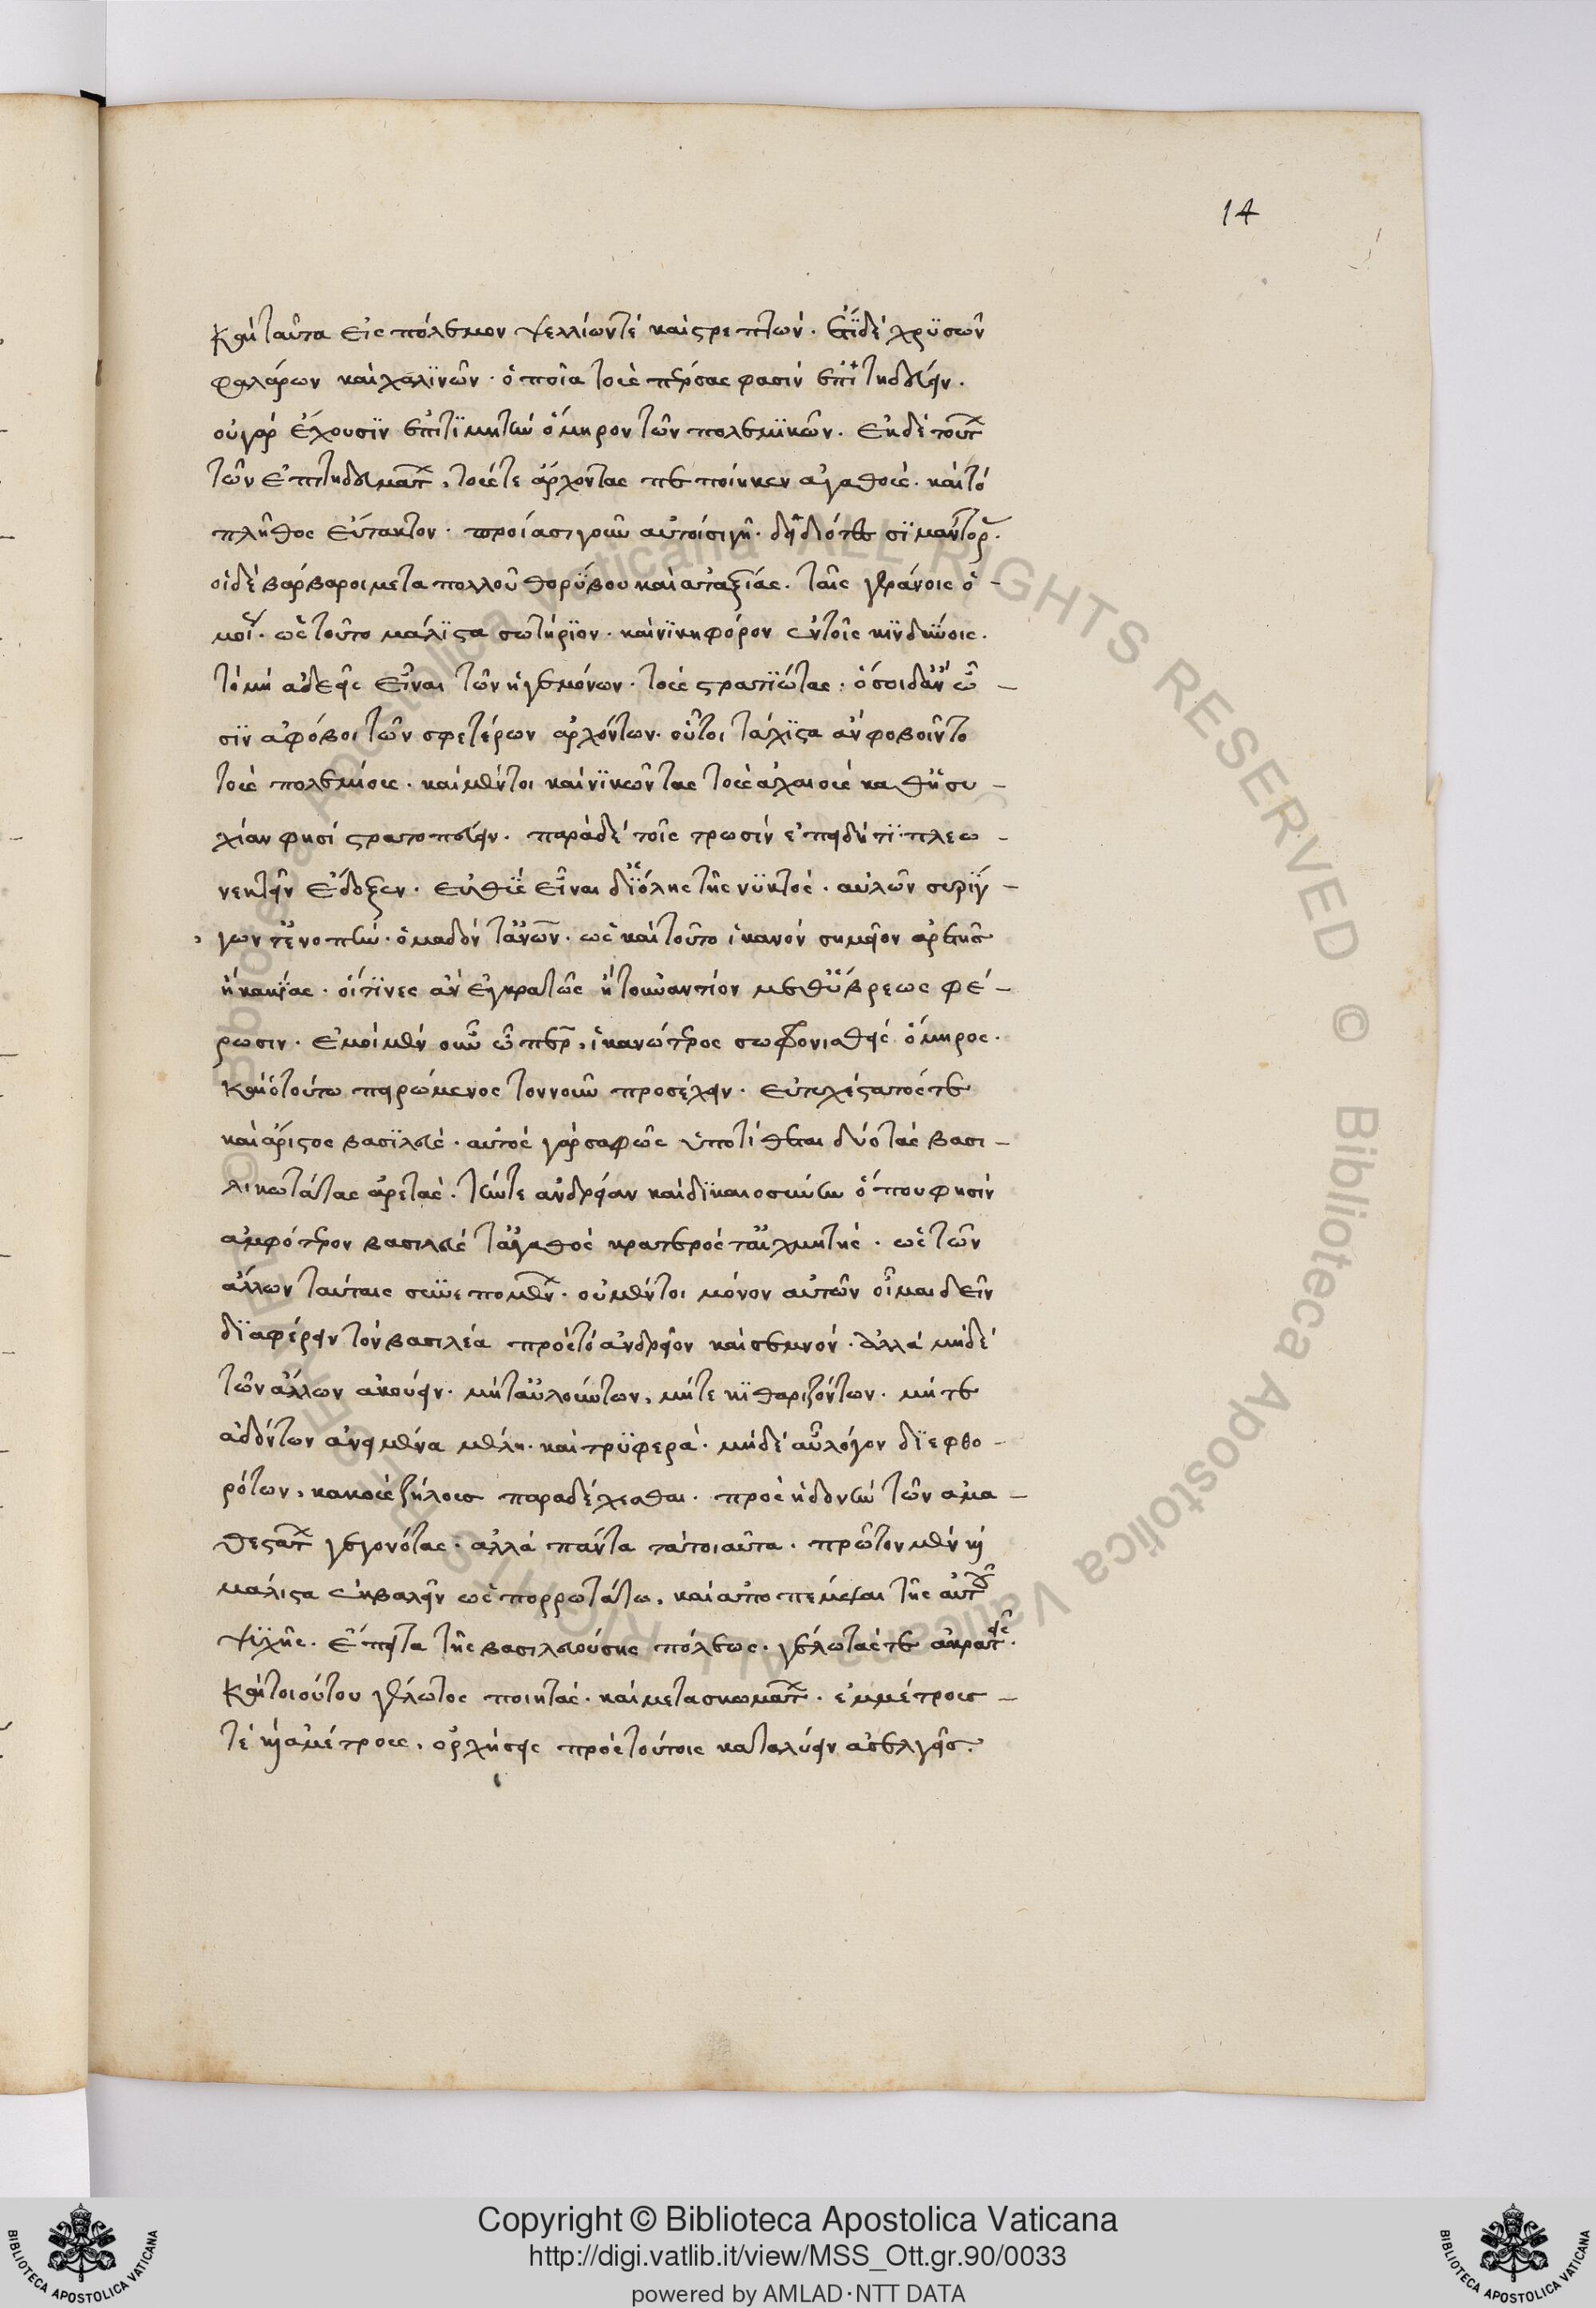 14
καὶ ταῦτα εἰς πόλεμον ψελλίων τὲ καὶ στρεπτῶν. ἔτι δὲ χρϋσῶν
φαλάρων καὶ χαλϊνῶν. ὁποῖα τοὺς πέρσας φασὶν ἐπιτηδεύειν.
οὐ γὰρ ἔχουσϊν ἐπιτϊμητὴν ὅμηρον τῶν πολεμϊκῶν. ἐκ δὲ τούτων
τῶν ἐπιτηδευμάτων, τούς τε ἄρχοντας πεποίηκεν ἀγαθούς. καὶ τὸ
πλῆθος εὔτακτον. προΐασι γοῦν αὐτοὶ σιγῆ. δειδιότες σϊμάντορας.
οἱ δὲ βάρβαροι μετὰ πολλοῦ θορϋβου καὶ ἀταξίας. ταῖς γεράνοις ὅ-
μοιοι. ὡς τοῦτο μάλϊστα σωτήρϊον. καὶ νϊκηφόρον ἐν τοῖς κϊνδϋνοις.
τὸ μὴ ἀδεεῖς εἶναι τῶν ἡγεμόνων. τοὺς στρατϊώτας. ὅσοι δ' ἂν ὦ-
σϊν ἄφοβοι τῶν σφετέρων ἀρχόντων. οὗτοι τάχϊστα ἂν φοβοῖντο
τοὺς πολεμίους. καὶ μέντοι καὶ νϊκῶντας τοὺς ἀχαιοὺς καθ' ἡσυ-
χίαν φησὶ στρατοπεδεύειν. παρὰ δὲ τοῖς τρωσὶν ἐπειδή τϊ πλεο-
νεκτεῖν ἔδοξεν. εὐθϋς εἶναι δι' ὅλης τῆς νϋκτὸς. αὐλῶν συρϊγ-
γων τ' ἐνοπὴν. ὅμαδόν τ' ἀνθρώπων. ὡς καὶ τοῦτο ἱκανὸν σημεῖον ἀρετῆς
ἢ κακϊας. οἵτϊνες ἂν ἐγκρατῶς ἢ τοὐναντίον μεθ' ὕβρεως φέ-
ρωσιν. ἐμοὶ μὲν οὖν ὦ πάτερ, ἱκανώτατος σωφρονισθεὶς ὅμηρος.
καὶ ὁ τούτω πειρώμενος τὸν νοῦν προσέχειν. εὐτυχέστατός τε
καὶ ἄριστος βασϊλεύς. αὐτὸς γὰρ σαφῶς ὑποτίθεται δύο τὰς βασι-
λικωτάτας ἀρετὰς. τήν τε ἀνδρείαν καὶ δϊκαιοσύνην ὅπου φησὶν
ἀμφότερον βασιλεύς τ' ἀγαθὸς κρατερός τ' αἰχμητής. ὡς τῶν
ἄλλων ταύταις συνεπομένων. οὐ μέντοι μόνον αὐτῶν οἶμαι δεῖν
δϊαφέρειν τὸν βασιλέα πρὸς τὸ ἀνδρεῖον καὶ σεμνόν. ἀλλὰ μηδὲ
τῶν ἄλλων ἀκούειν. μήτ' αὐλούντων, μήτε κϊθαριζόντων. μήτε
ἀδόντων ἀνειμένα μέλη. καὶ τρϋφερὰ. μηδὲ αὖ λόγον δϊεφθο-
ρότων, κακοὺς ζήλους παραδέχεσθαι. πρὸς ἡδονὴν τῶν ἀμα-
θεστάτων γεγονότας. ἀλλὰ πάντα τὰ τοιαῦτα. πρῶτον μὲν καὶ
μάλιστα ἐκβαλεῖν ὡς πορρωτάτω, καὶ ἀποπέμψαι τῆς αὐτοῦ
ψϋχῆς. ἔπειτα τῆς βασιλευούσης πόλεως. γέλωτάς τε ἀκρατεῖς.
καὶ τοιούτου γέλωτος ποιητὰς. καὶ μετὰ σκωμμάτων. ἐμμέτρους-
τὲ καὶ ἀμέτρους, ὀρχήσεις πρὸς τούτοις καταλύειν ἀσελγεῖς.
Copyright © Biblioteca Apostolica Vaticana
http://digi.vatlib.it/view/MSS_Ott.gr.90/0033
powered by AMLAD·NTT DATA